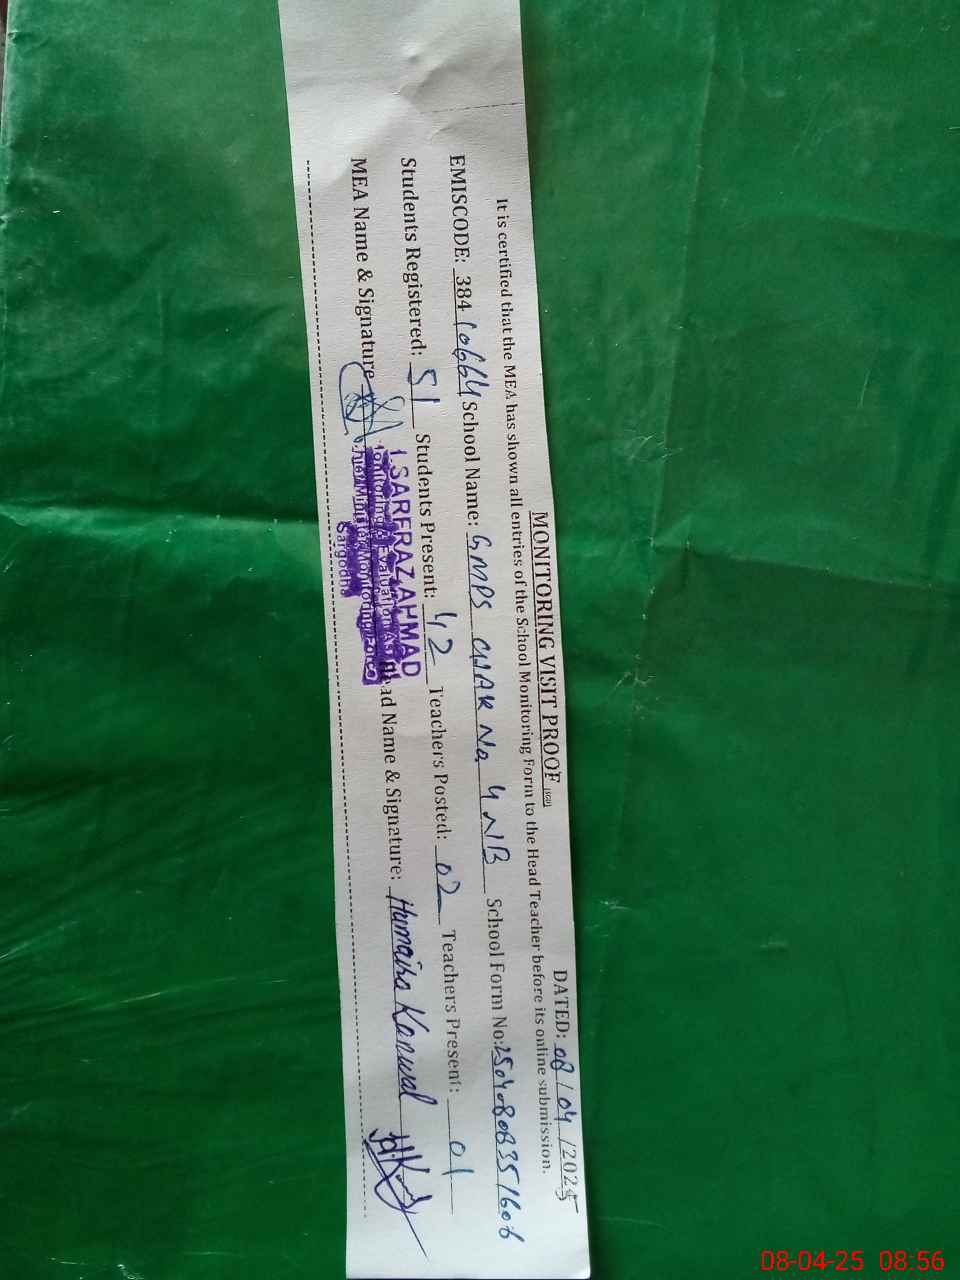 MONITORING VISIT PROOF DATED: 08/04/2025
It is certified that the MEA has shown all entries of the School Monitoring Form to the Head Teacher before its online submission.
EMISCODE: 38410664 School Name: GMPS CHAK No 4 NB School Form No:
Students Registered: 51 Students Present: 42 Teachers Posted: 02 Teachers Present: 01
MEA Name & Signature Head Name & Signature: Humaira Kanwal
SARFRAZ AHMAD
Monitoring & Evaluation
Chief Minister Monitoring Force
Sargodha
08-04-25 08:56